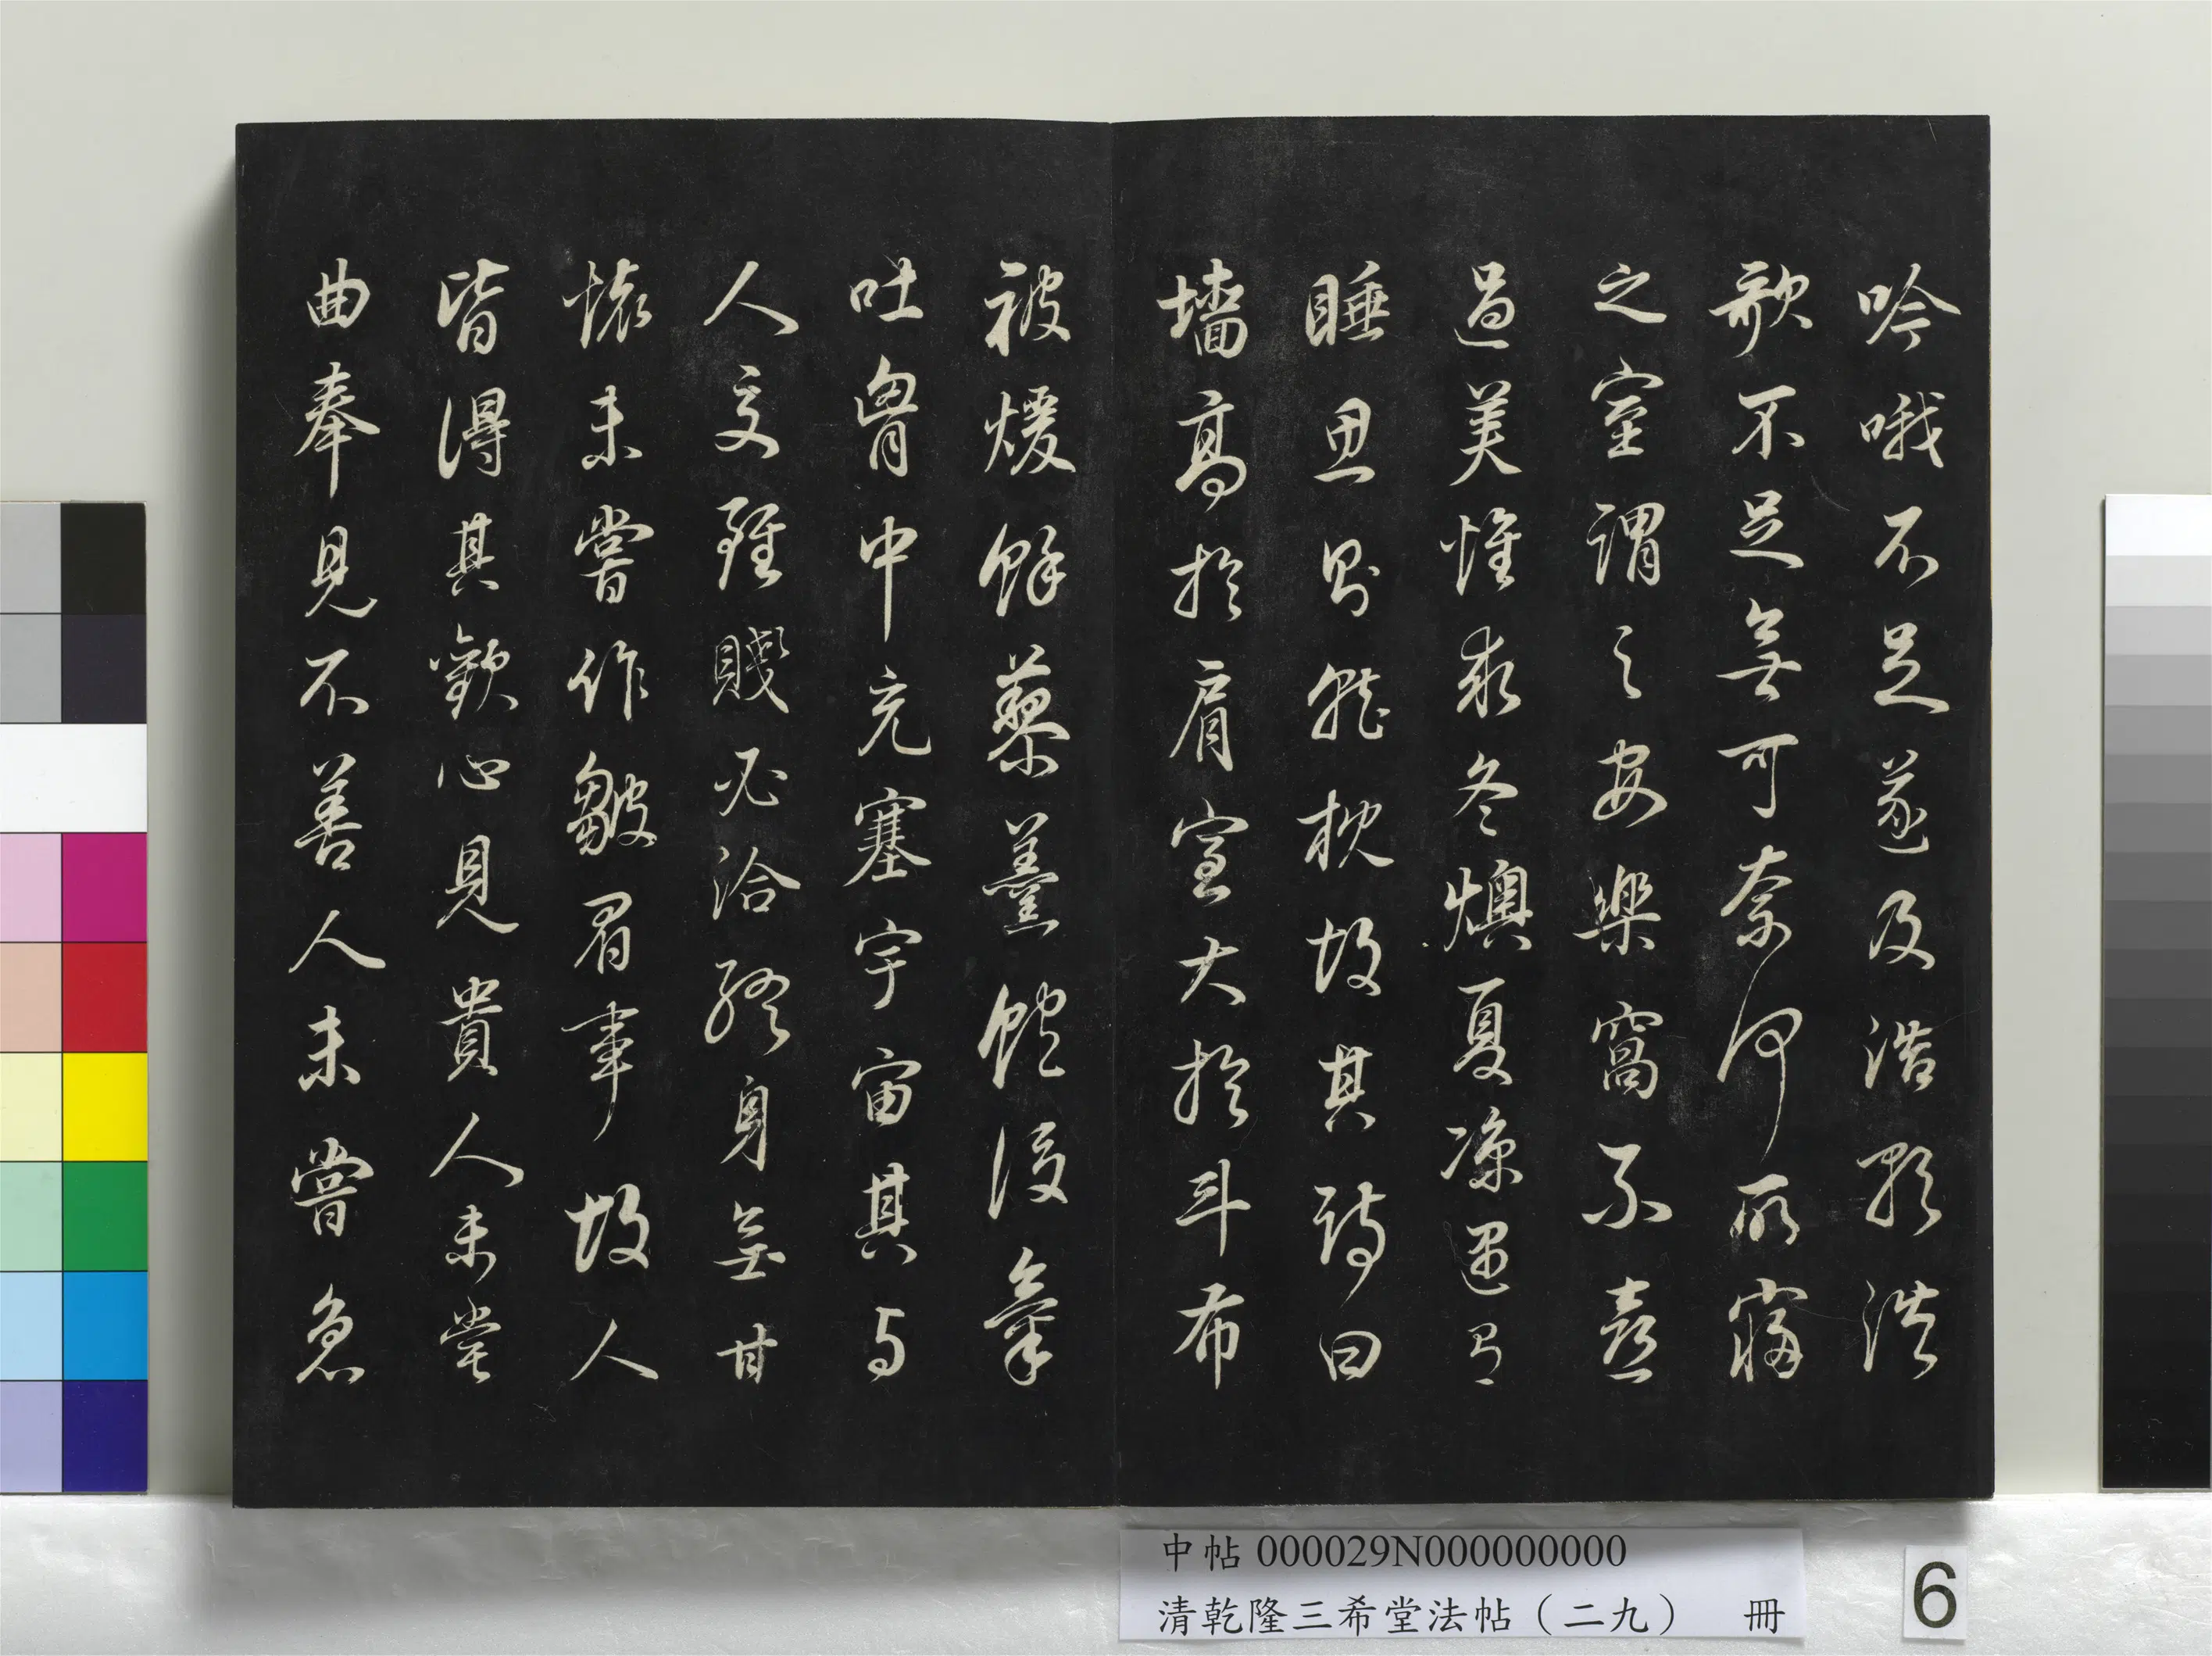 吟哦不足遂及浩歌浩
歌不足無可奈何所寢
之室謂之安樂窩不喜
過美惟求冬燠夏涼遇有
睡思則就枕故其詩曰
墻高於肩室大於斗布
被煖餘藜羹飽後氣
吐胷中充塞宇宙其與
人交雖賤必洽終身無甘
懷未嘗作皺眉事故人
皆得其歡心見貴人未嘗
曲奉見不善人未嘗急
中帖 000029N000000000
清乾隆三希堂法帖（二九） 冊
6